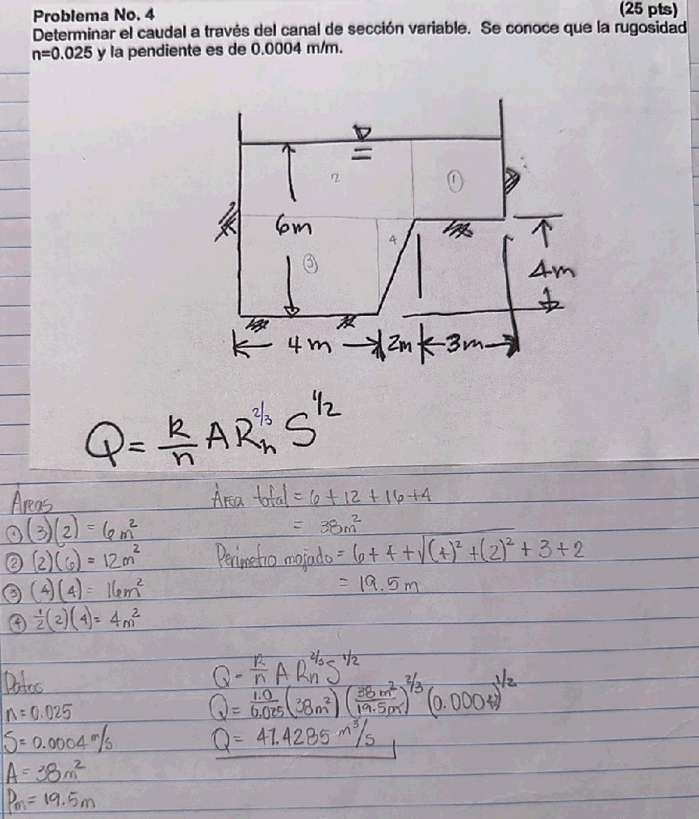 Problema No. 4 (25 pts)
Determinar el caudal a través del canal de sección variable. Se conoce que la rugosidad
n=0.025 y la pendiente es de 0.0004 m/m.
2 ①
6m 4
③ 4m
4m 2m 3m
Q = k/n A Rₙ^2/3 S^1/2
Áreas
① (3)(2) = 6m²
② (2)(6) = 12m²
③ (4)(4) = 16m²
④ ½(2)(4) = 4m²
Área total = 6 + 12 + 16 + 4
= 38m²
Perímetro mojado = 6 + 4 + √(4)² + (2)² + 3 + 2
= 19.5m
Datos
n = 0.025
S = 0.0004 m/s
A = 38m²
Pm = 19.5m
Q = k/n A Rn^2/3 S^1/2
Q = 1.0/0.025 (38m²) (38m²/19.5m)^2/3 (0.0004)^1/2
Q = 47.4285 m³/s